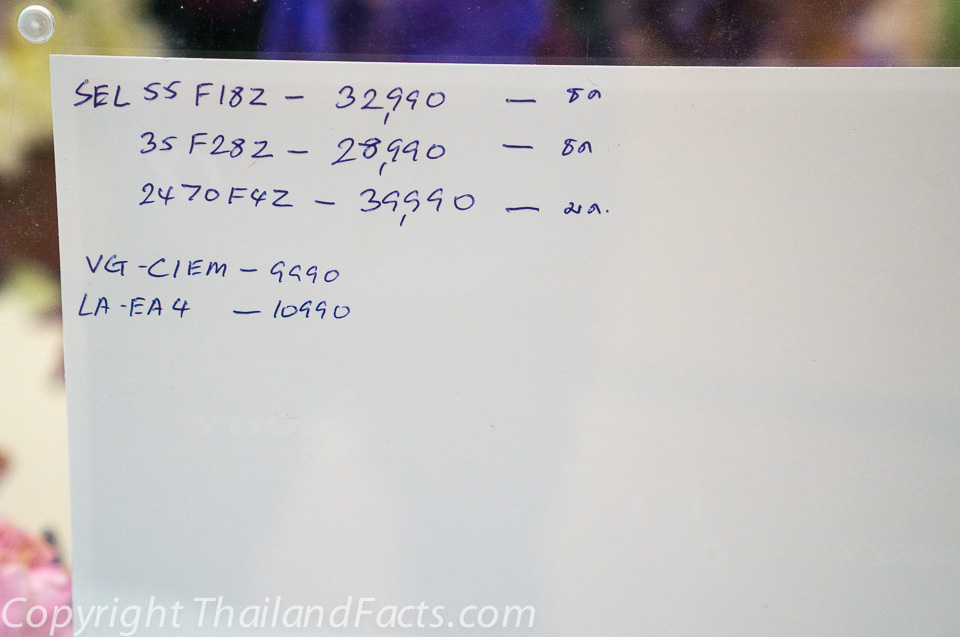 SEL 55 F18Z - 32,990 - ธค
35 F28Z - 28,990 - ธค
2470 F4Z - 39,990 - มค.
VG-C1EM - 9990
LA-EA4 - 10990
Copyright ThailandFacts.com